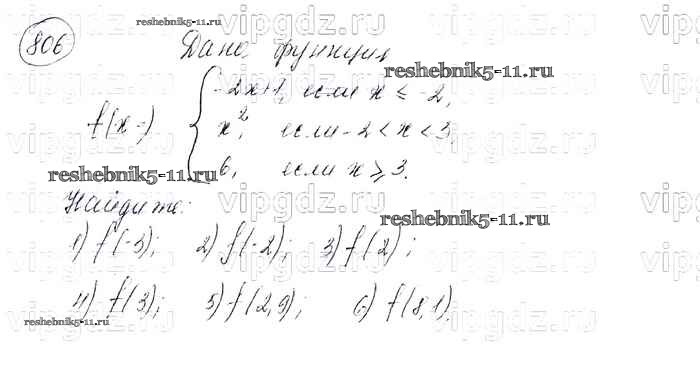 806
Дана функция
-2x+1, если x ≤ -2,
f(x)= { x², если -2 < x < 3,
6, если x ≥ 3.
Найдите:
1) f(-3); 2) f(-2); 3) f(2);
4) f(3); 5) f(2,9); 6) f(8,1).
reshebnik5-11.ru
reshebnik5-11.ru
reshebnik5-11.ru
reshebnik5-11.ru
reshebnik5-11.ru
vipgdz.ru vipgdz.ru vipgdz.ru